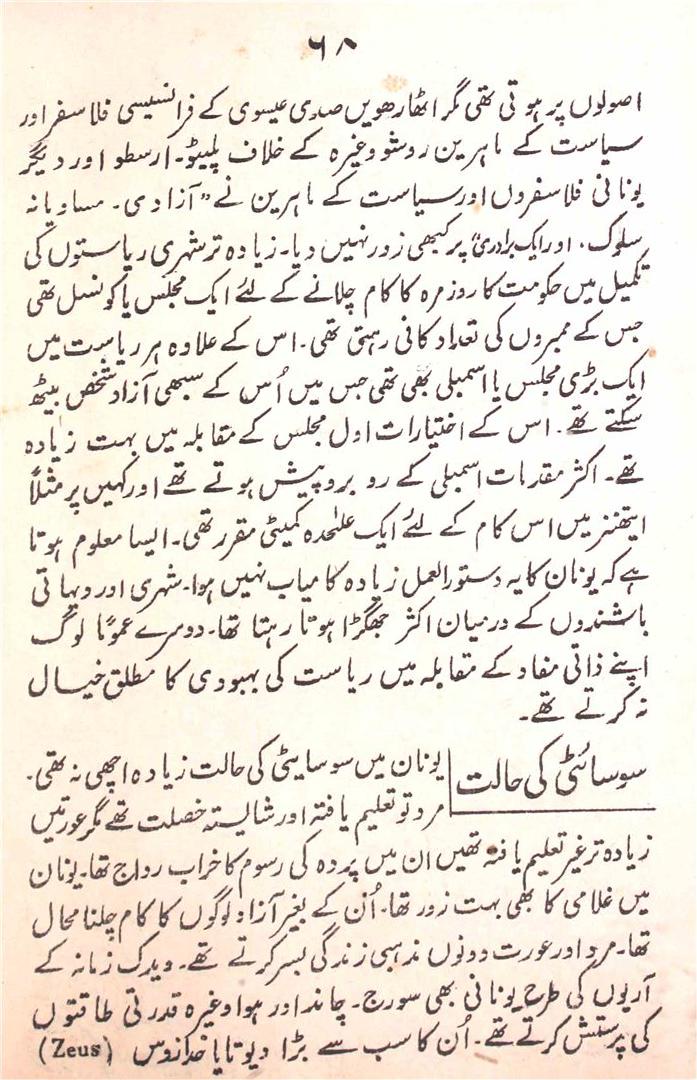 ۶۸
اصولوں پر ہوتی تھی مگر اٹھارھویں صدی عیسوی کے فرانسیسی فلاسفر اور
سیاست کے ماہرین روسو وغیرہ کے خلاف پلیٹو۔ ارسطو اور دیگر
یونانی فلاسفروں اور سیاست کے ماہرین نے ”آزادی۔ مساویانہ
سلوک، اور ایک برادری“ پر کبھی زور نہیں دیا۔ زیادہ تر شہری ریاستوں کی
تکمیل میں حکومت کا روزمرہ کا کام چلانے کے لئے ایک مجلس یا کونسل تھی
جس کے ممبروں کی تعداد کافی رہتی تھی۔ اس کے علاوہ ہر ریاست میں
ایک بڑی مجلس یا اسمبلی بھی تھی جس میں اُس کے سبھی آزاد شخص بیٹھ
سکتے تھے۔ اس کے اختیارات اول مجلس کے مقابلہ میں بہت زیادہ
تھے۔ اکثر مقدمات اسمبلی کے روبرو پیش ہوتے تھے اور کہیں پر مثلاً
ایتھنز میں اس کام کے لئے ایک علٰحدہ کمیٹی مقرر تھی۔ ایسا معلوم ہوتا
ہے کہ یونان کا یہ دستورالعمل زیادہ کامیاب نہیں ہوا۔ شہری اور دیہاتی
باشندوں کے درمیان اکثر جھگڑا ہوتا رہتا تھا۔ دوسرے عموماً لوگ
اپنے ذاتی مفاد کے مقابلہ میں ریاست کی بہبودی کا مطلق خیال
نہ کرتے تھے۔
سوسائٹی کی حالت
یونان میں سوسایٹی کی حالت زیادہ اچھی نہ تھی۔
مرد تو تعلیم یافتہ اور شایستہ خصلت تھے مگر عورتیں
زیادہ تر غیر تعلیم یافتہ تھیں ان میں پردہ کی رسوم کا خراب رواج تھا۔ یونان
میں غلامی کا بھی بہت زور تھا۔ اُن کے بغیر آزاد لوگوں کا کام چلنا محال
تھا۔ مرد اور عورت دونوں مذہبی زندگی بسر کرتے تھے۔ ویدک زمانہ کے
آریوں کی طرح یونانی بھی سورج۔ چاند اور ہوا وغیرہ قدرتی طاقتوں
کی پرستش کرتے تھے۔ اُن کا سب سے بڑا دیوتا یا خدا زوس (Zeus)